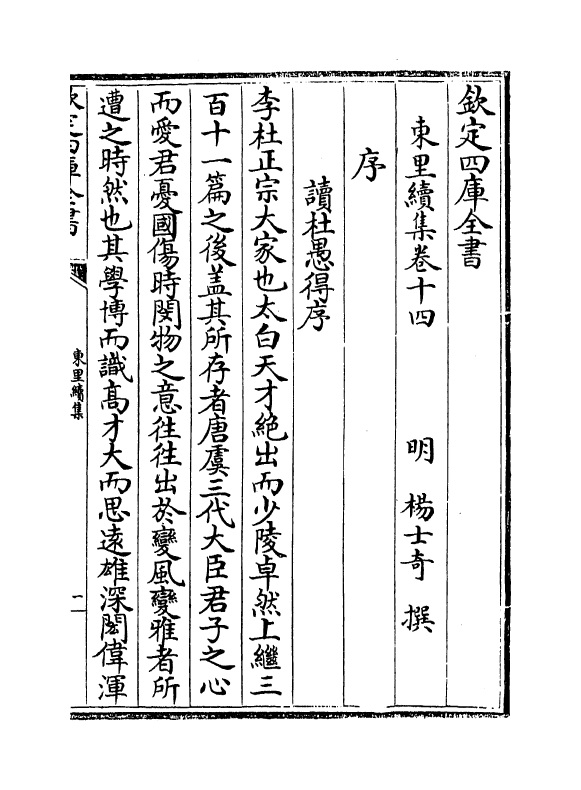 欽定四庫全書
東里續集卷十四 明 楊士奇 撰
序
讀杜愚得序
李杜正宗大家也太白天才絶出而少陵卓然上繼三
百十一篇之後盖其所存者唐虞三代大臣君子之心
而愛君憂國傷時閔物之意往往出於變風變雅者所
遭之時然也其學博而識髙才大而思遠雄深閎偉渾
欽定四庫全書
東里續集
一